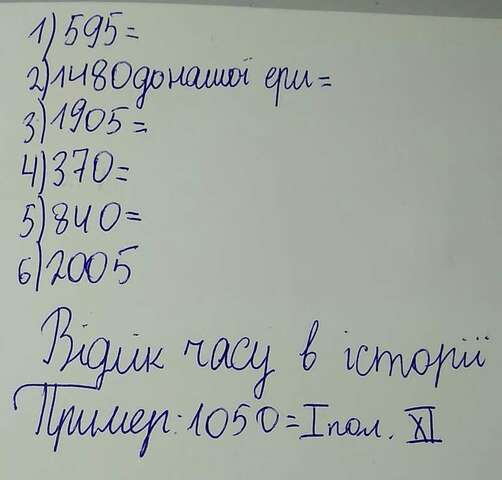 1) 595 =
2) 1480 до нашої ери =
3) 1905 =
4) 370 =
5) 840 =
6) 2005
Відлік часу в історії
Пример: 1050 = I пол. XI